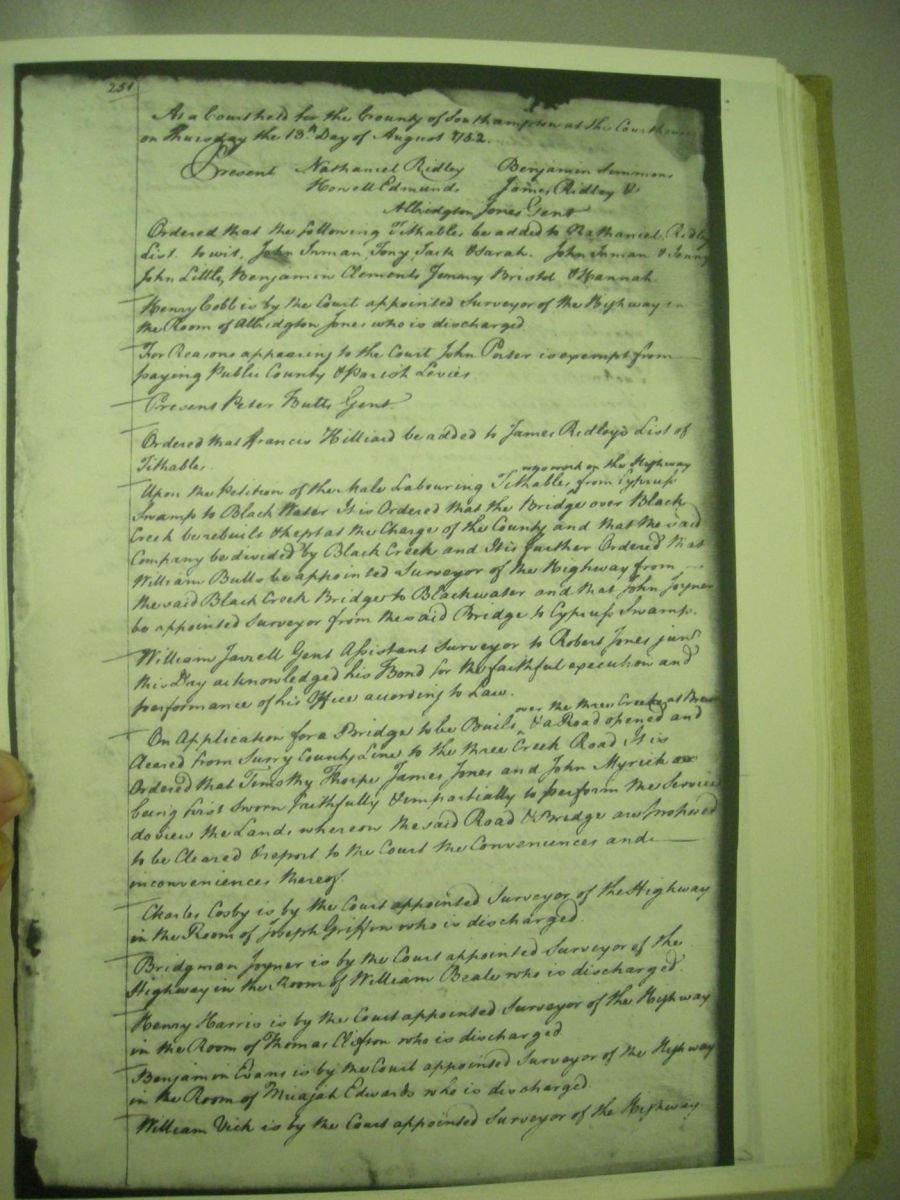 251
At a Court held for the County of Southampton at the Courthouse
on Thursday the 13th Day of August 1752.
Present Nathaniel Ridley Benjamin Simmons
Howell Edmunds James Ridley &
Albridgton Jones Gent
Ordered that the following Tithables be added to Nathaniel Ridley
List. to wit, John Inman Tony Jack & Sarah. John Inman & Jenny
John Little, Benjamin Clements Jemmy Bristol & Hannah.
Henry Cobb is by the Court appointed Surveyor of the Highway in
the Room of Albridgton Jones who is discharged
For Reasons appearing to the Court John Porter is exempt from
paying Public County & Parish Levies
Present Peter Butts Gent.
Ordered that Francis Hilliard be added to James Ridley's List of
Tithables.
who work on the Highway
Upon the Petition of the Male Labouring Tithables from Cypruss
Swamp to Black Water It is Ordered that the Bridge over Black
Creek be rebuilt & kept at the Charge of the County and that the said
Company be divided by Black Creek and It is further Ordered that
William Butts be appointed Surveyor of the Highway from
the said Black Creek Bridge to Blackwater and that John Joyner
be appointed Surveyor from the said Bridge to Cypruss Swamp.
William Jarrell Gent Assistant Surveyor to Robert Jones junr
this Day acknowledged his Bond for the faithful execution and
performance of his Office according to Law.
over the three Creeks at
On Application for a Bridge to be Built & a Road opened and
cleared from Surry County Line to the three Creek Road It is
Ordered that Timothy Thorpe James Jones and John Myrick
being first Sworn faithfully & impartially to perform the Service
do view the Lands whereon the said Road & Bridge are proposed
to be Cleared & report to the Court the Conveniences and
inconveniences thereof.
Charles Cosby is by the Court appointed Surveyor of the Highway
in the Room of Joseph Griffin who is discharged
Bridgman Joyner is by the Court appointed Surveyor of the
Highway in the Room of William Beale who is discharged
Henry Harris is by the Court appointed Surveyor of the Highway
in the Room of Thomas Clifton who is discharged
Benjamin Evans is by the Court appointed Surveyor of the Highway
in the Room of Micajah Edwards who is discharged
William Vick is by the Court appointed Surveyor of the Highway